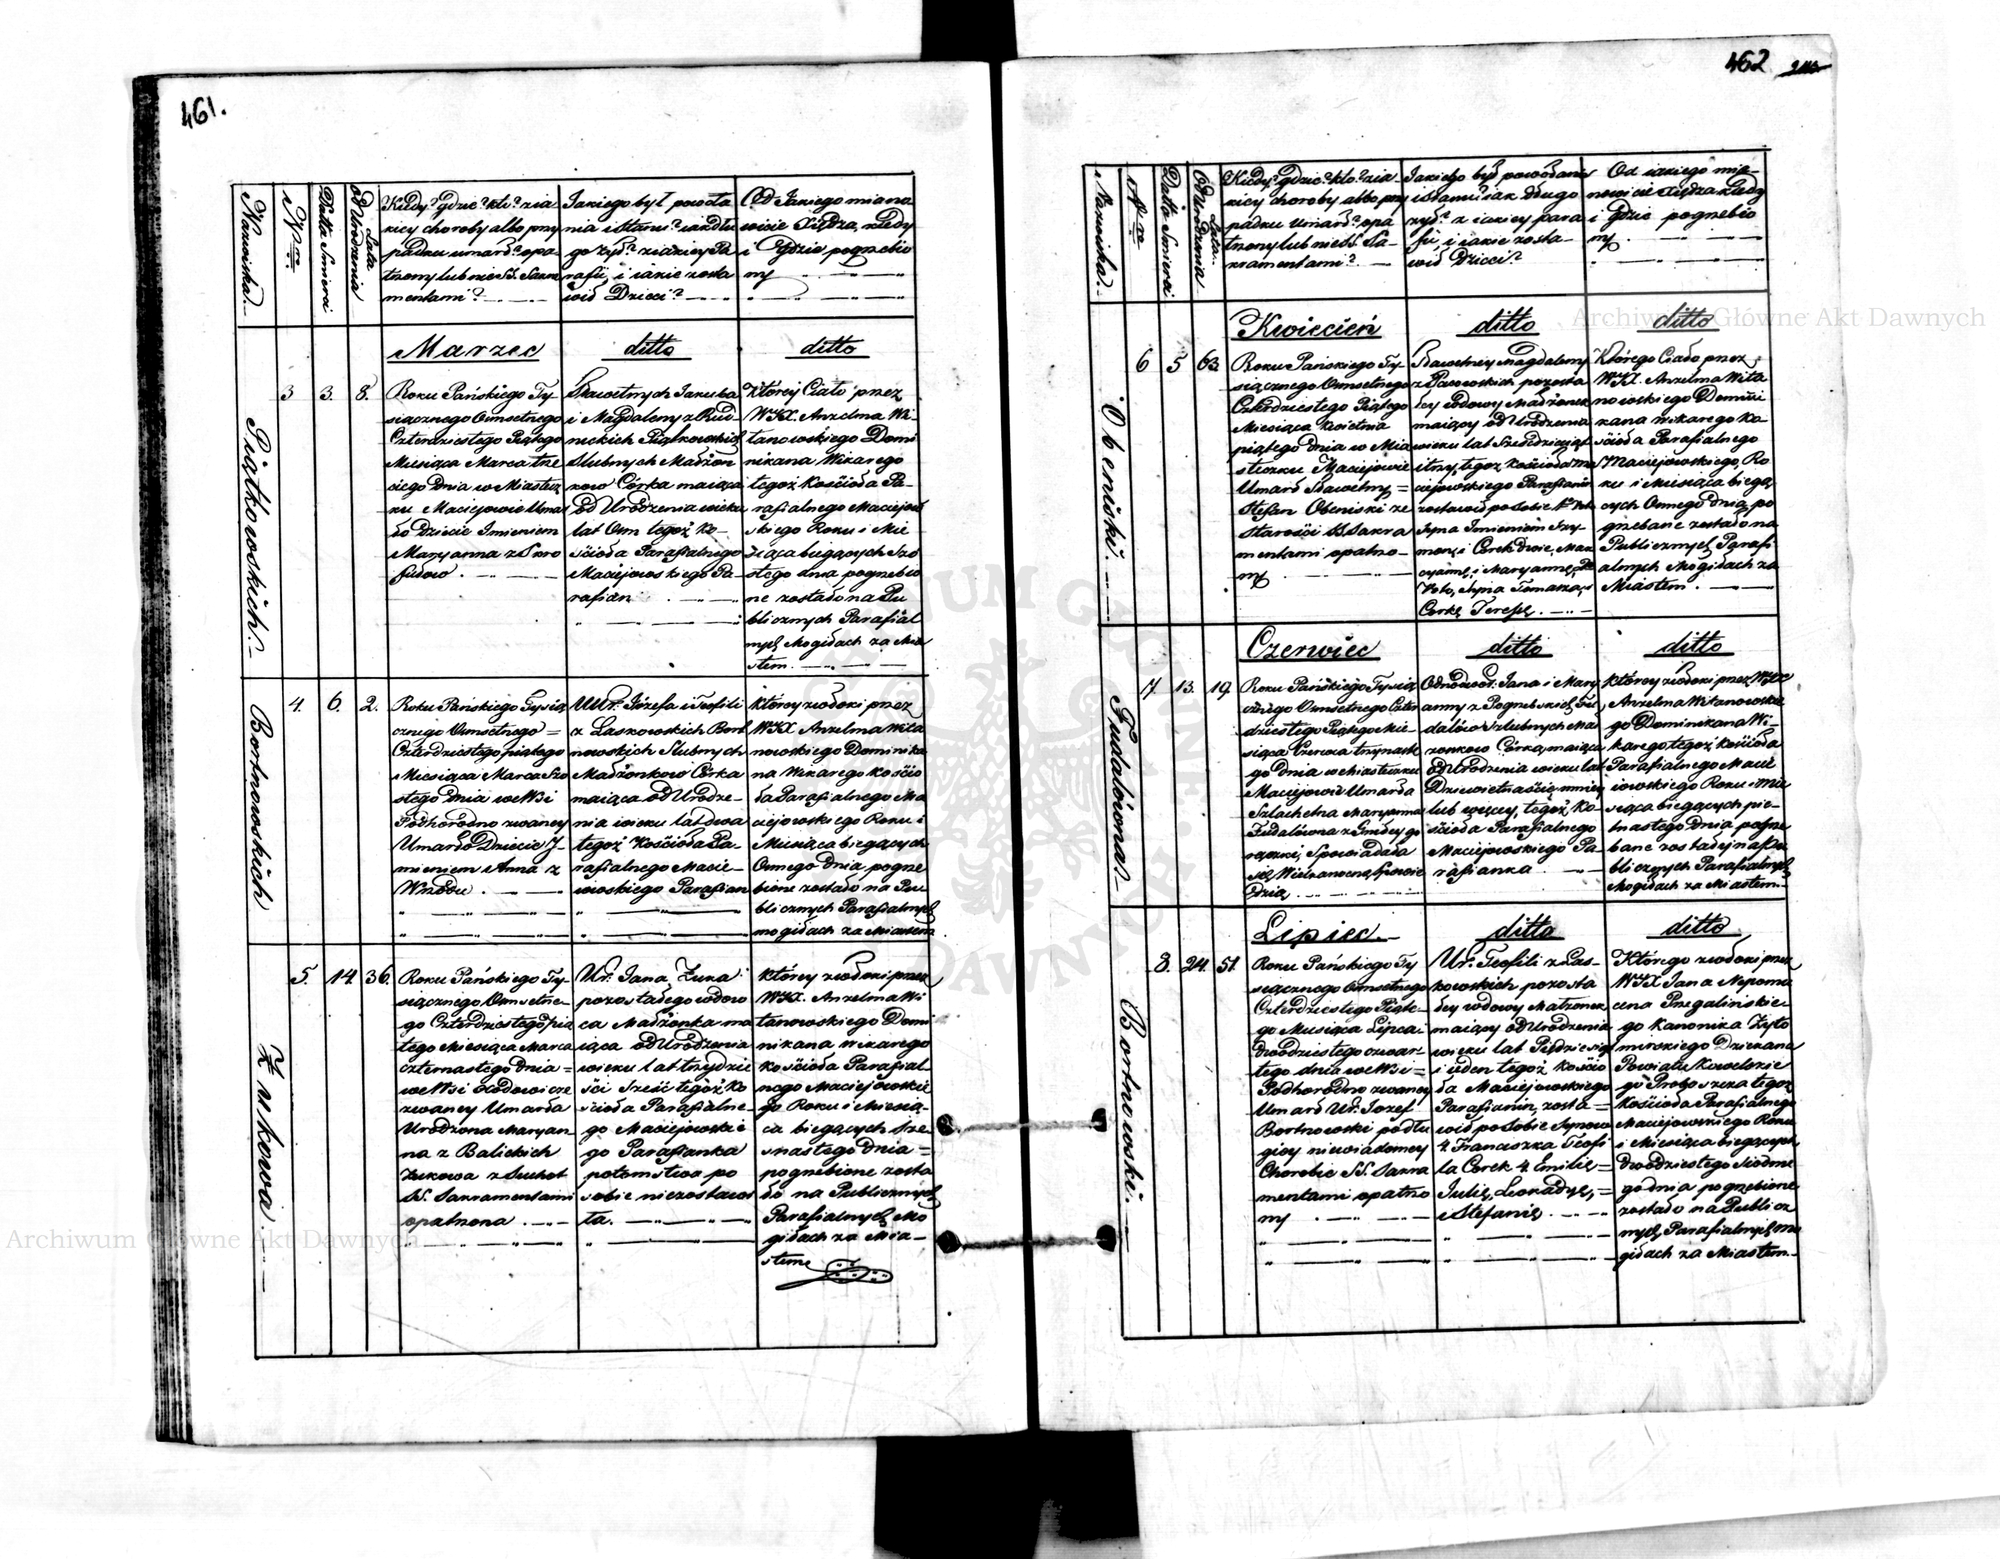 461.
Nazwiska
Nro
Datta Śmierci
Lata od Urodzenia
Kiedy? gdzie? kto? z ia-
kiey choroby albo przy
padku umarł? opa-
trzony lub nie SS. Sakra
mentami?
Jakiego był powoła
nia i stanu? iak dłu
go żył? z iakiey Pa-
rafii, i iakie zosta
wił Dzieci?
Od Jakiego miano
wicie Xiędza, kiedy
i Gdzie pogrzebio
ny
Marzec
ditto
ditto
Piątkowskich.
3
3.
8.
Roku Pańskiego Ty-
siącznego Osmsetnego
Czterdziestego Piątego
Miesiąca Marca trze
ciego Dnia w Miastecz
ku Maciejowie Umar
ło Dziecie Imieniem
Maryanna z Skro
fułow
Sławetnych Jakuba
i Magdaleny z Rud
nickich Piątkowskich
Slubnych Małżon
kow Córka maiąca
od Urodzenia wieku
lat Osm tegoż Ko-
ścioła Parafialnego
Maciejowskiego Pa-
rafian
Ktorey Ciało przez
WJX. Anzelma Wi-
tanowskiego Domi
nikana Wikarego
tegoż Kościoła Pa-
rafialnego Maciejow
skiego Roku i Mie
siąca bieżących Szo
stego dnia pogrzebio
ne zostało na Pu
blicznych Parafial
nych Mogiłach za Mia
stem.
Bortnowskich
4.
6.
2.
Roku Pańskiego Tysią
cznego Osmsetnego
Czterdziestego piątego
Miesiąca Marca Szo
stego Dnia we Wsi
Podhorodno zwaney
Umarło Dziecie J-
mieniem Anna z
Wrzodu
Ur. Józefa i Teofili
z Laskowskich Bort
nowskich Slubnych
Małżonkow Córka
maiąca od Urodze-
nia wieku lat dwa
tegoż Kościoła Pa-
rafialnego Macie-
iowskiego Parafian
którey zwłoki przez
WJX Anzelma Wita
nowskiego Dominika
na Wikarego Kościo
ła Parafialnego Ma
ciejowskiego Roku i
Miesiąca bieżących
Osmego Dnia pogrze
bione zostało na Pu
blicznych Parafialnych
mogiłach za Miastem
Żukowa.
5.
14
36.
Roku Pańskiego Ty-
siącznego Osmsetne-
go Czterdziestego pią
tego Miesiąca Marca
czternastego Dnia
we Wsi
zwaney Umarła
Urodzona Maryan-
na z Balickich
Żukowa z Suchot
SS. Sakramentami
opatrzona
Ur. Jana Żuka
pozostałego wdow
ca Małżonka ma
iąca od Urodzenia
wieku lat trzydzie
ści sześć tegoż Ko
ścioła Parafialne-
go Maciejowskie
go Parafianka
potomstwa po
sobie niezostawi
ła.
którey zwłoki przez
WJX. Anzelma Wi
tanowskiego Domi
nikana Wikarego
Kościoła Parafial-
nego Maciejowskie
go Roku i Miesią-
ca bieżących Sze-
snastego Dnia
pogrzebione zosta
ło na Publicznych
Parafialnych Mo
giłach za Mia-
stem
462
Nazwiska.
Nro
Datta Śmierci
Lata od Urodzenia
Kiedy? gdzie? kto? z ia-
kiey choroby albo przy
padku Umarł? opa
trzony lub nie SS. Sa-
kramentami?
Jakiego był powołania
i stanu? iak długo
żył? z iakiey para
fii, i iakie zosta-
wił Dzieci?
Od iakiego mia-
nowicie Xiędza kiedy
i gdzie pogrzebio
ny
Kwiecień
ditto
ditto
Obeniski.
6
5
63.
Roku Pańskiego Ty-
siącznego Osmsetnego
Czterdziestego Piątego
Miesiąca Kwietnia
piątego Dnia w Mia
steczku Maciejowie
Umarł Sławetny
Stefan Obeniski ze
starości SS. Sakra
mentami opatrzo-
ny
Sławetney Magdaleny
z pozosta
łey wdowy Małżonek
maiący od Urodzenia
wieku lat Sześćdziesiąt
i trzy, tegoż Kościoła Ma
ciejowskiego Parafianin
zostawił po Sobie
Syna Imieniem Szy-
mon, i Corek dwie, Mar
cyannę, i Maryannę,
Voto, Syna Tomasza, i
Corkę Teressę.
Którego Ciało przez
WJX. Anzelma Wita
nowskiego Domini
kana Wikarego Ko-
ścioła Parafialnego
Maciejowskiego, Ro
ku i Miesiąca bieżą
cych Osmego Dnia po
grzebane zostało na
Publicznych Parafi
alnych Mogiłach za
Miastem.
Czerwiec
ditto
ditto
Fudalówna.
7.
13.
19.
Roku Pańskiego Tysią
cznego Osmsetnego Czter
dziestego Piątego Mie-
siąca Czerwca trzynaste
go Dnia w Miasteczku
Maciejowie Umarła
Szlachetna Maryanna
Fudalówna z
rączki, Spowiadała
się Wielkanocną Spowie
dzią
Odnodwor. Jana i Mary
anny z Fu
dalów Szlubnych Mał
żonkow Córka, maiąca
od Urodzenia wieku lat
Dziewietnaście, mniey
lub więcey, tegoż Ko-
ścioła Parafialnego
Maciejowskiego Pa
rafianka
Którey zwłoki przez WJX
Anzelma Witanowskie
go Dominikana Wi-
karego tegoż Kościoła
Parafialnego Macie
iowskiego Roku i Mie
siąca bieżących pię-
tnastego Dnia pogrze
bane zostały na Pu
blicznych Parafialnych
Mogiłach za Miastem.
Lipiec.
ditto
ditto
Bortnowski.
8.
24.
51.
Roku Pańskiego Ty
siącznego Osmsetnego
Czterdziestego Piąte-
go Miesiąca Lipca
dwódziestego czwar-
tego dnia we Wsi
Podhorodno zwaney
Umarł Ur. Jozef
Bortnowski po dłu
giey niewiadomey
Chorobie SS. Sakra
mentami opatrzo
ny
Ur. Teofili z Las-
kowskich pozosta
łey wdowy Małżonek
maiący od Urodzenia
wieku lat Pięćdziesiąt
i ieden tegoż Kościo
ła Maciejowskiego
Parafianin, zosta-
wił po Sobie Synow
4 Franciszka Teofi
la Corek 4 Emilię
Julię, Leokadyę,
i Stefanię
Którego zwłoki przez
WJX Jana Nepomu
cena Przegalińskie
go Kanonika Żyto
mirskiego Dziekana
Powiatu Kowelskie
go Proboszcza tegoż
Kościoła Parafialnego
Maciejowskiego Roku
i Miesiąca bieżących
dwódziestego Siodme
go dnia pogrzebione
zostało na Publicz
nych Parafialnych Mo
giłach za Miastem.
Archiwum Główne Akt Dawnych
Archiwum Główne Akt Dawnych